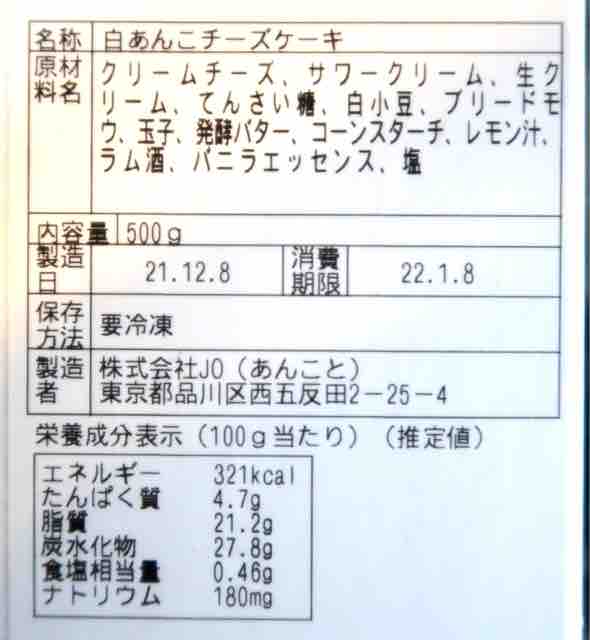 名称 白あんこチーズケーキ
原材料名 クリームチーズ、サワークリーム、生ク
リーム、てんさい糖、白小豆、ブリードモ
ウ、玉子、発酵バター、コーンスターチ、レモン汁、
ラム酒、バニラエッセンス、塩
内容量 500g
製造日 21.12.8 消費期限 22.1.8
保存方法 要冷凍
製造者 株式会社JO（あんこと）
東京都品川区西五反田2−25−4
栄養成分表示（100g当たり）（推定値）
エネルギー 321kcal
たんぱく質 4.7g
脂質 21.2g
炭水化物 27.8g
食塩相当量 0.46g
ナトリウム 180mg